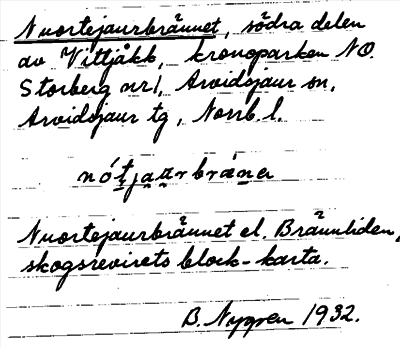 Nuortejaurbrännet, södra delen
av Vittjåkk, kronoparken NO.
Storberg nr 1, Arvidsjaur sn,
Arvidsjaur tg, Norrb. l.
nótjaurbräna
Nuortejaurbrännet el. Brännliden,
skogsrevirets block-karta.
B. Nygren 1932.